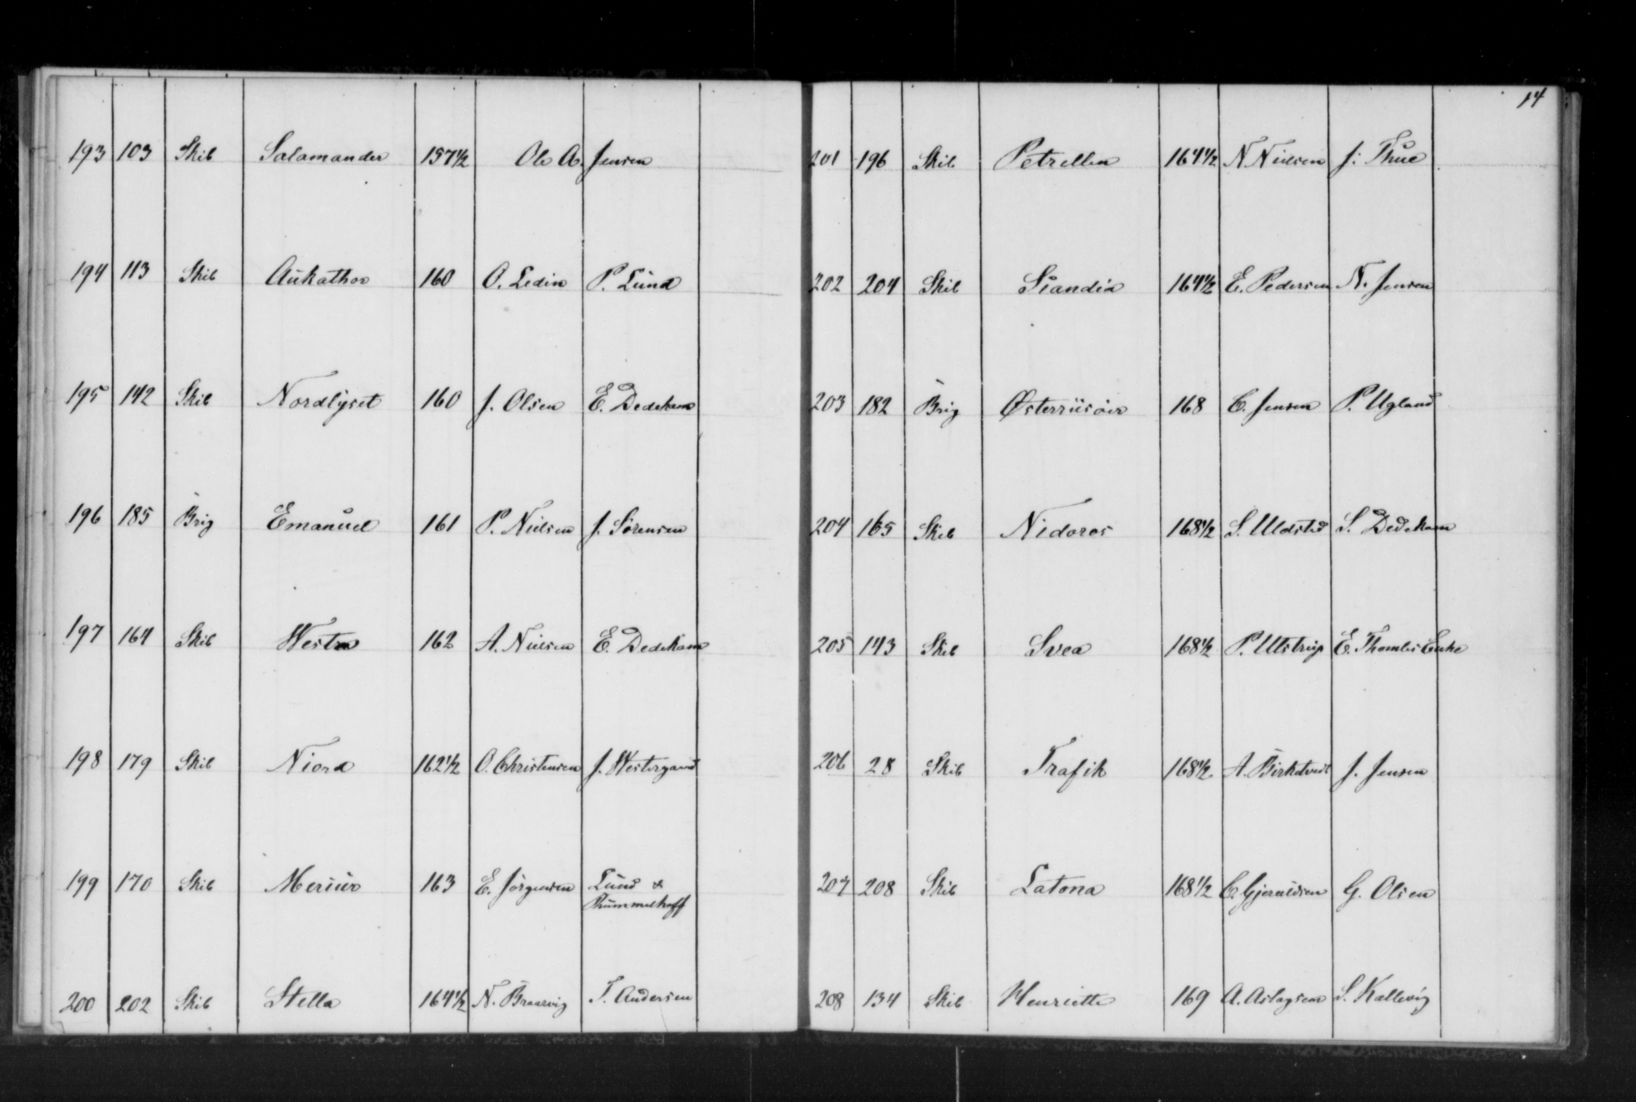 193 103 Skib Salamander 157½ Ole A. Jensen
194 113 Skib Aukathor 160 O. Ledin P. Lund
195 142 Skib Nordlyset 160 J. Olsen E. Dedekam
196 185 Brig Emanuel 161 P. Nielsen J. Sörensen
197 164 Skib Westa 162 A. Nielsen E. Dedekam
198 179 Skib Niord 162½ O. Christensen J. Westergaard
199 170 Skib Mercur 163 E. Jörgensen Lund &
Rummelhoff
200 202 Skib Stella 164½ N. Braarvig T. Andersen
14
201 196 Skib Petrellen 164½ N Nielsen J. Thue
202 204 Skib Scandia 164½ E. Pedersen N. Jensen
203 182 Brig Østerriisöer 168 C. Jensen P. Ugland
204 165 Skib Nidaros 168½ S. Uldsted S. Dedekam
205 143 Skib Svea 168½ P. Ulstrup E. Thomles Enke
206 28 Skib Trafik 168½ A. Birketvedt J. Jensen
207 208 Skib Latona 168½ C. Gjeruldsen G. Olsen
208 134 Skib Henriette 169 A. Aslagsen S. Kallevig